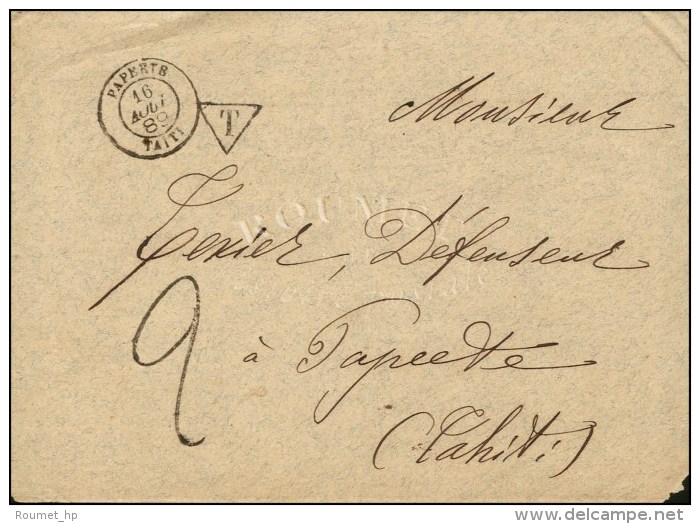 PAPEETE
16
AOUT
89
TAITI
T
Monsieur
Texier, Défenseur
à Papeete
(Tahiti)
2
ROUMET
Roumet_hp
delcampe.net